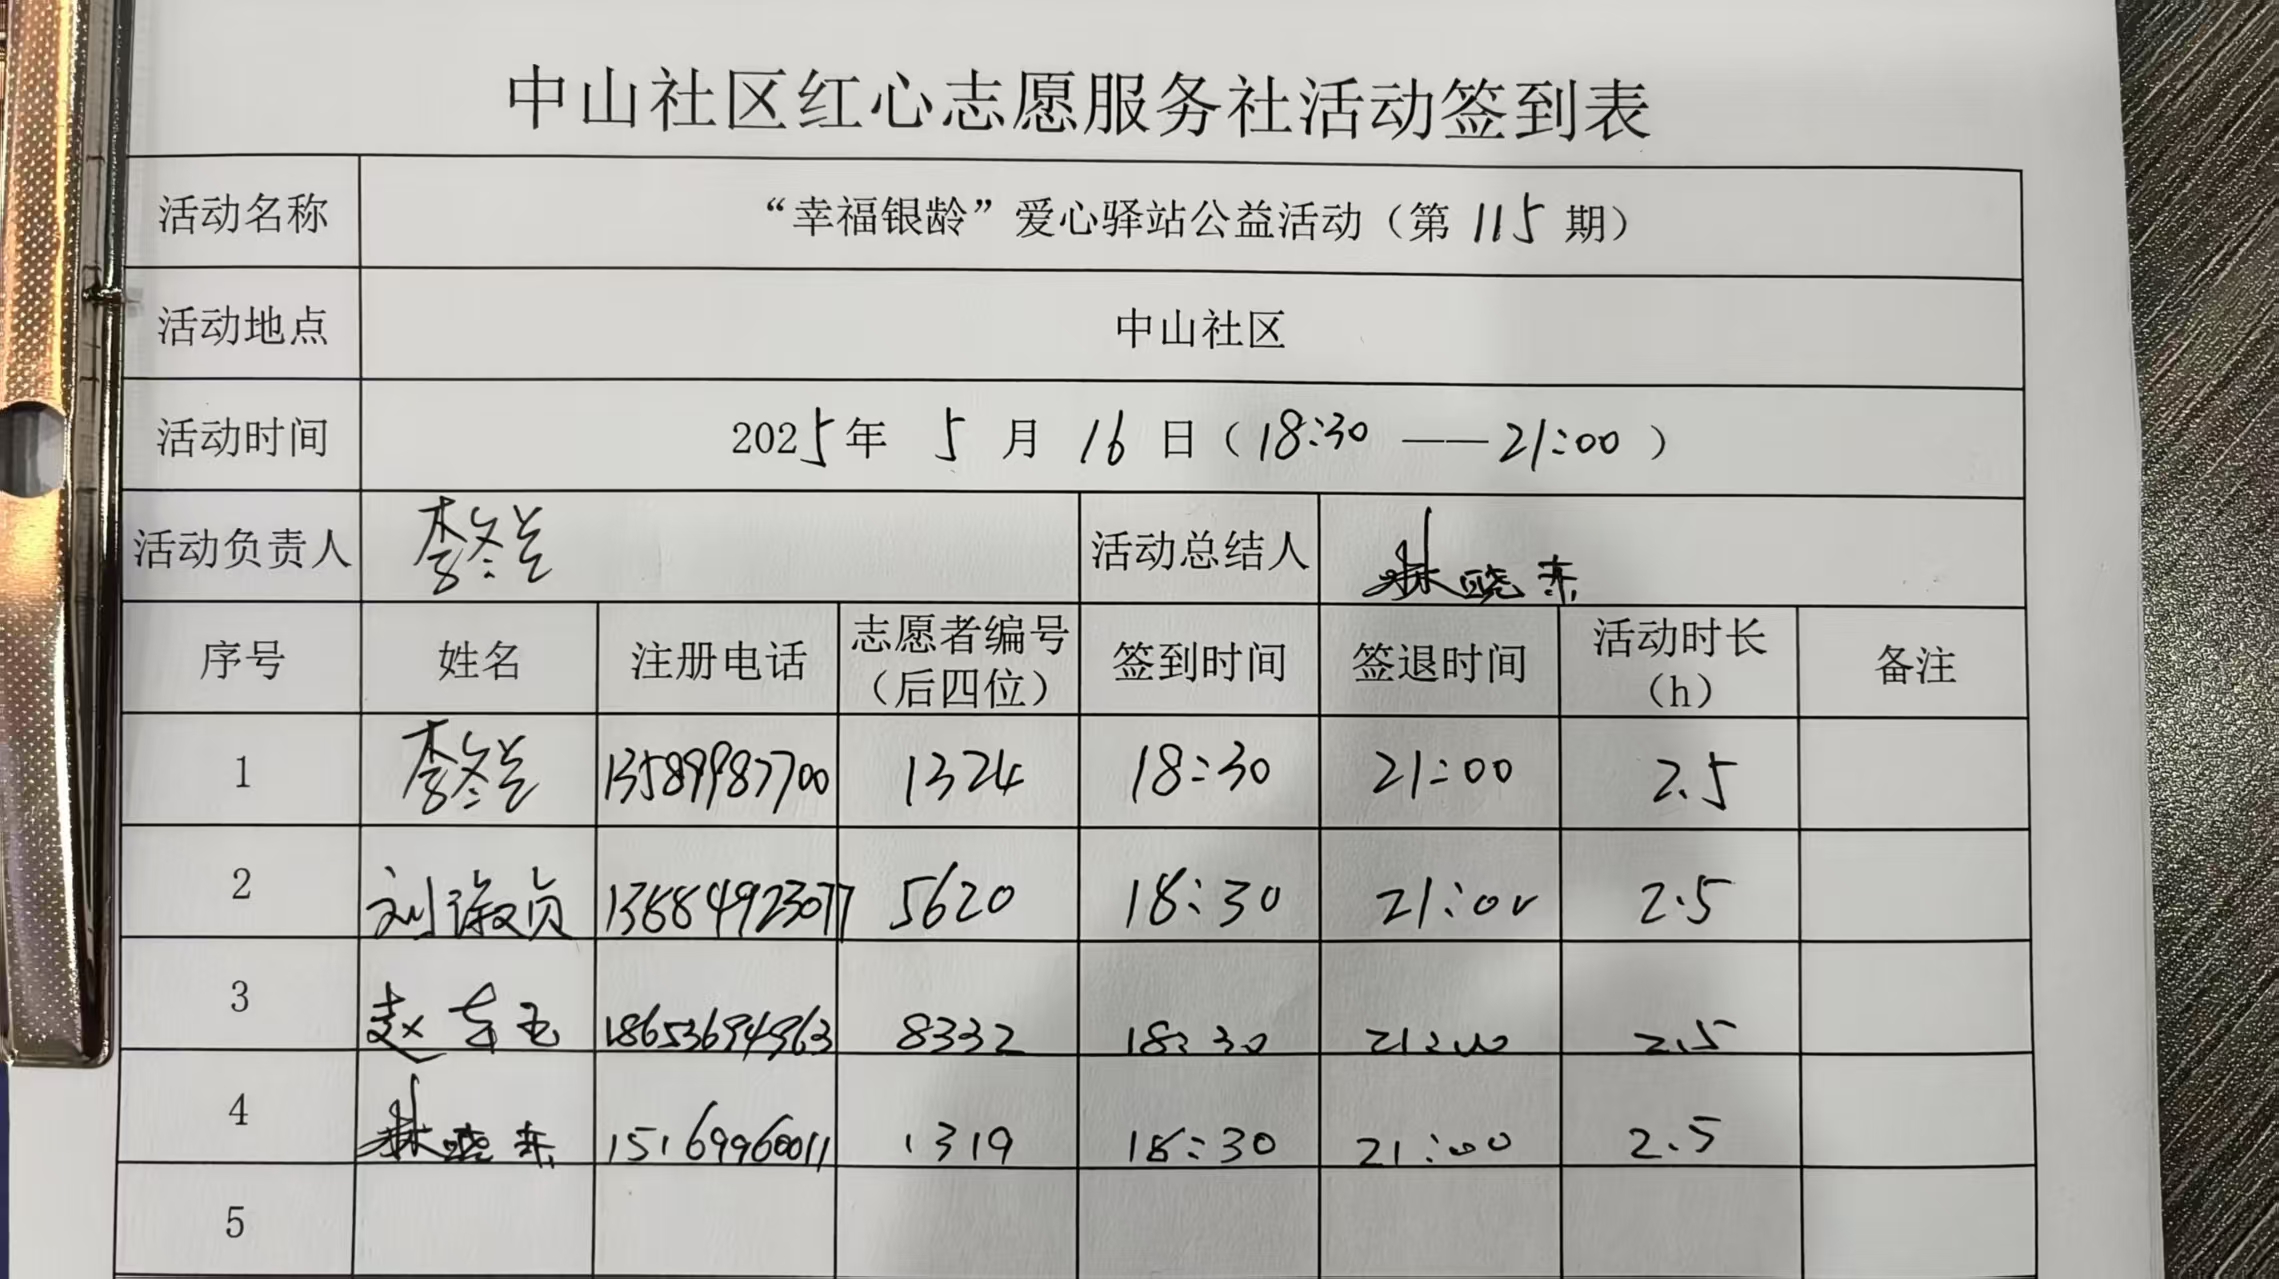 中山社区红心志愿服务社活动签到表
活动名称 “幸福银龄”爱心驿站公益活动（第 115 期）
活动地点 中山社区
活动时间 2025年 5 月 16 日（18:30 —— 21:00）
活动负责人 李冬兰 活动总结人 林晓东
序号 姓名 注册电话 志愿者编号（后四位） 签到时间 签退时间 活动时长（h） 备注
1 李冬兰 13589987700 1324 18:30 21:00 2.5
2 刘淑贞 13884923077 5620 18:30 21:00 2.5
3 赵玉 18653694963 8332 18:30 21:00 2.5
4 林晓东 15169960011 1319 18:30 21:00 2.5
5